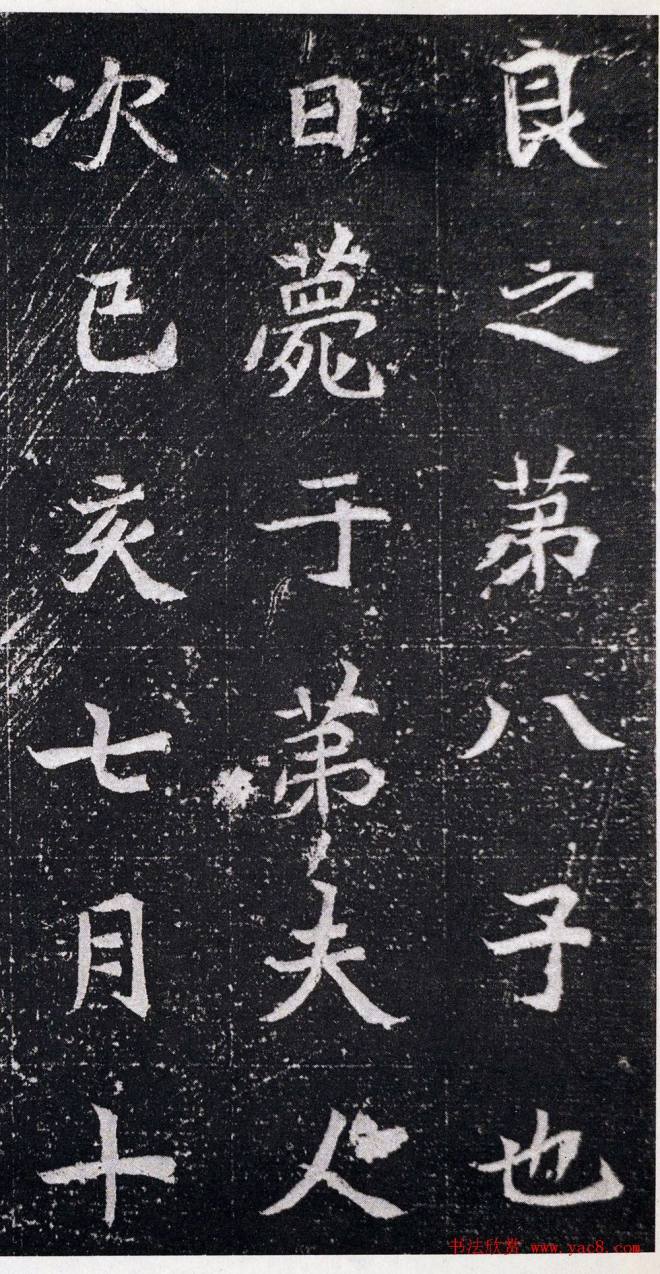 良之苐八子也
日薨于苐夫人
次己亥七月十
书法欣赏 www.yac8.com